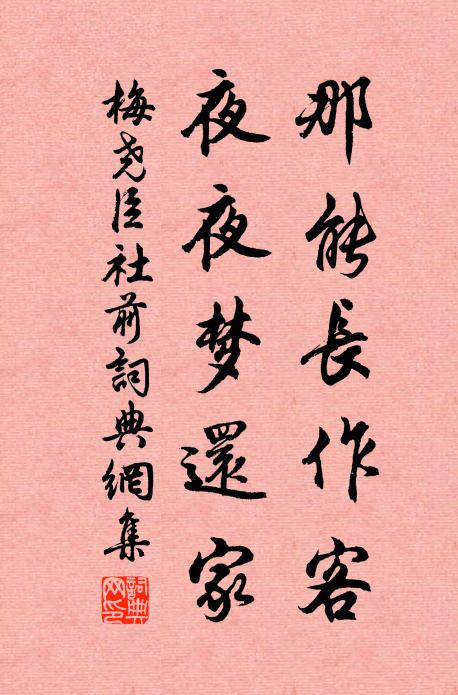 那能長作客
夜夜梦還家
梅尧臣社前詞典網集
詞典
网印